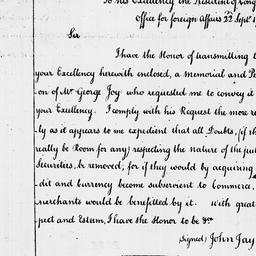 To his Excellency the President of Cong
Office for foreign Affairs 22 Sept. 1
Sir
I have the Honor of transmitting t
your Excellency herewith enclosed, a memorial and Pe
on of Mr. George Joy who requested me to convey it
your Excellency. I comply with his Request the more re
ly as it appears to me expedient that all Doubts, (if th
really be Room for any) respecting the nature of the pub
Securities, be removed; for if they would by acquiring
dit and Currency become subservient to Commerce,
merchants would be benefitted by it. With great
pect and Esteem, I have the Honor to be &c
(signed) John Jay